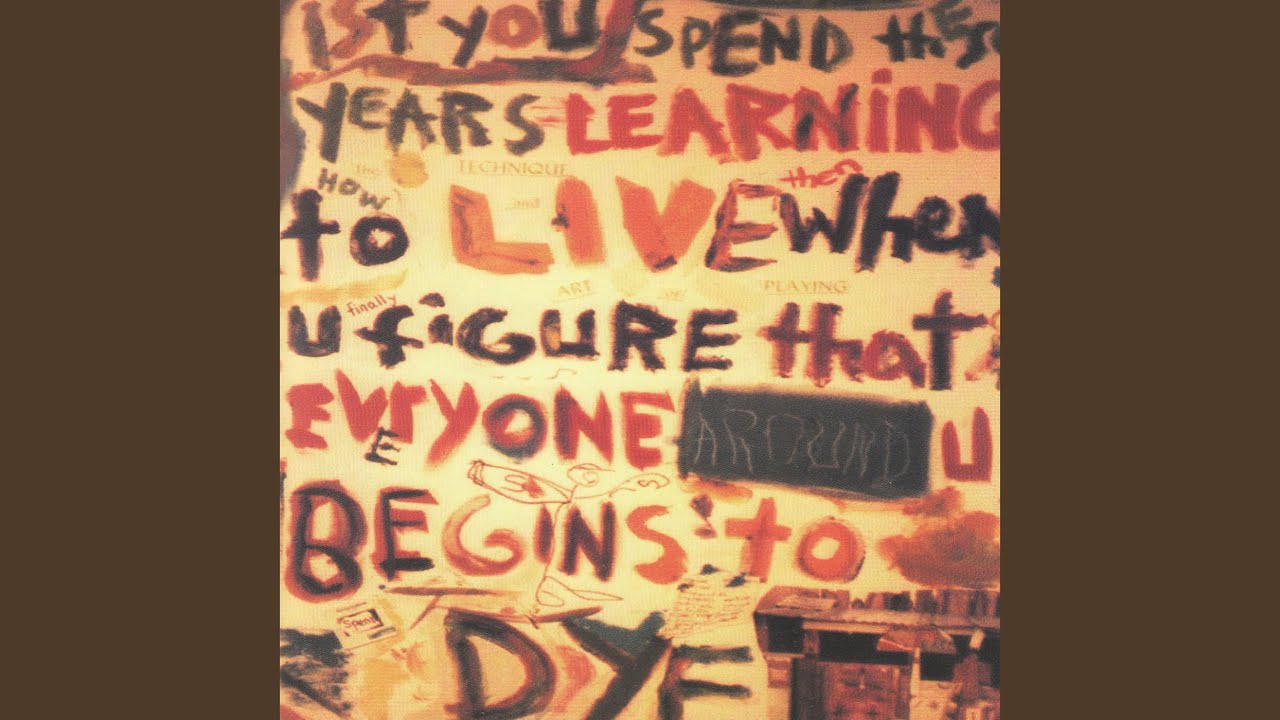 1st you SPEND these
YEARS LEARNiNG
the TECHNIQUE
HOW and then
to LIVE when
ART OF PLAYING
finally
u fiGURE that
EVERYONE AROUND u
E
BEGINS to
Spend
DYE